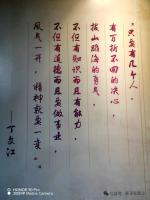 “只要有几个人，
有百折不回的决心，
拔山蹈海的勇气，
不但有知识而且有能力，
不但有道德而且要做事业，
风气一开，精神就要一变。”
——丁文江